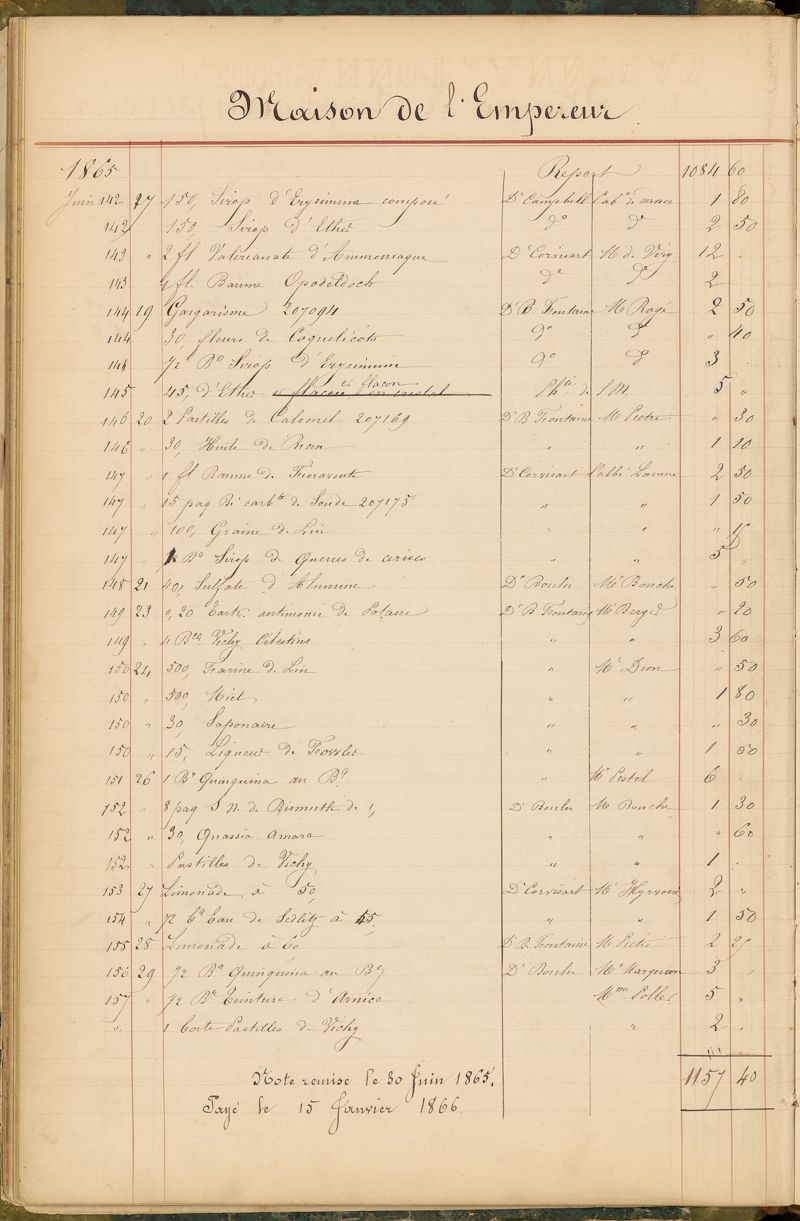 Maison de l'Empereur
1865 Report 1084 60
Juin 142 27 150, Sirop d'Erysimum composé Dr Campbell Cabt de service 1 80
142 150, Sirop d'Ether do do 2 50
143 " 2 fl Valerianate d'Ammoniaque Dr Corvisart M de Viry 12 .
143 1 fl. Baume Opodeldoch do do 2
144 19 Gargarisme 207094 Dr B. Fontaine M Rogé 2 50
144 30, fleurs de Coquelicots do do " 40
144 1/2 Blle Sirop d'Erysimum do do 3 .
145 45, d'Ether et flacon Phie de S.M. 5 "
146 20 2 Pastilles de Calomel 207169 Dr B Fontaine M Pietre " 30
146 " 30, Huile de Ricin " " 1 10
147 " 1 fl Baume de Fioraventi Dr Corvisart l'abbé Laenne 2 50
147 " 15 paq Bi carbte de Soude 207175 " " 1 50
147 " 100, Graine de Lin " " "
147 . Blle Sirop de Queues de cerises " " 5 "
148 21 40, Sulfate d'Alumine Dr Boulu Mr Bouche " 50
149 23 0,20 Tartr. antimonié de Potasse Dr B Fontaine Mr Berget " 20
149 " 4 Blles Vichy Célestins " " 3 60
150 24 500, Farine de Lin " Mr Dion " 50
150 " 500, Miel " " 1 80
150 " 30, Saponaire " " " 30
150 " 15, Liqueur de Fowler " " 1 50
151 26 1 Blle Quinquina au Bx " Mr Pestel 6 .
152 " 8 paq S N. de Bismuth de 1, Dr Boulu Mr Bouche 1 30
152 " 30, Quassia amara " " " 60
152 " Pastilles de Vichy " " 1 .
153 27 Limonade à 50, Dr Corvisart Mr Hyrvoix 2 "
154 " 1/2 Blle Eau de Sedlitz à 45, " " 1 50
155 28 Limonade à 60 Dr B. Fontaine M Pietre 2 25
156 29 1/2 Blle Quinquina au Bx Dr Boulu Mr Marguion 3 "
157 " 1/2 Blle Teinture d'Arnica Mme Pollet 5 "
" 1 boite Pastilles de Vichy " 2 .
Note remise le 30 Juin 1865. 1157 40
Payé le 15 Janvier 1866.